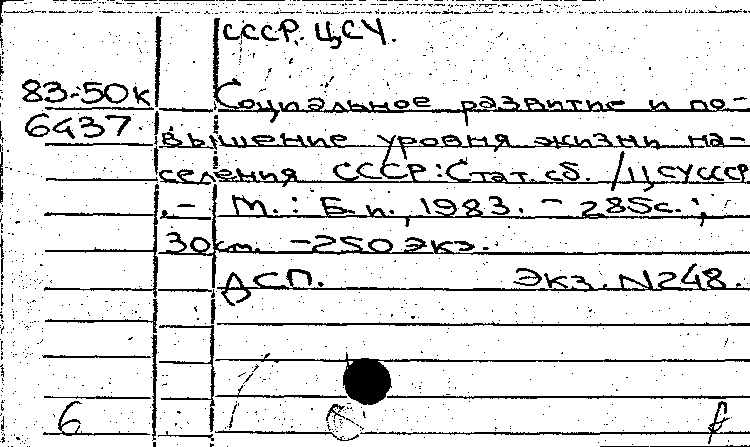 СССР. ЦСУ.
83-50к
6437.
Социальное развитие и по-
вышение уровня жизни на-
селения СССР: Стат. сб. / ЦСУ СССР
.- М.: Б.и., 1983. - 285с.;
30см. - 250 экз.
ДСП. Экз. N248.
6